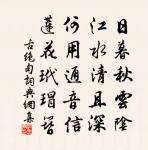 日暮秋雲陰
江水清且深
何用通音信
蓮花玳瑁簪
古絕句詞典網集